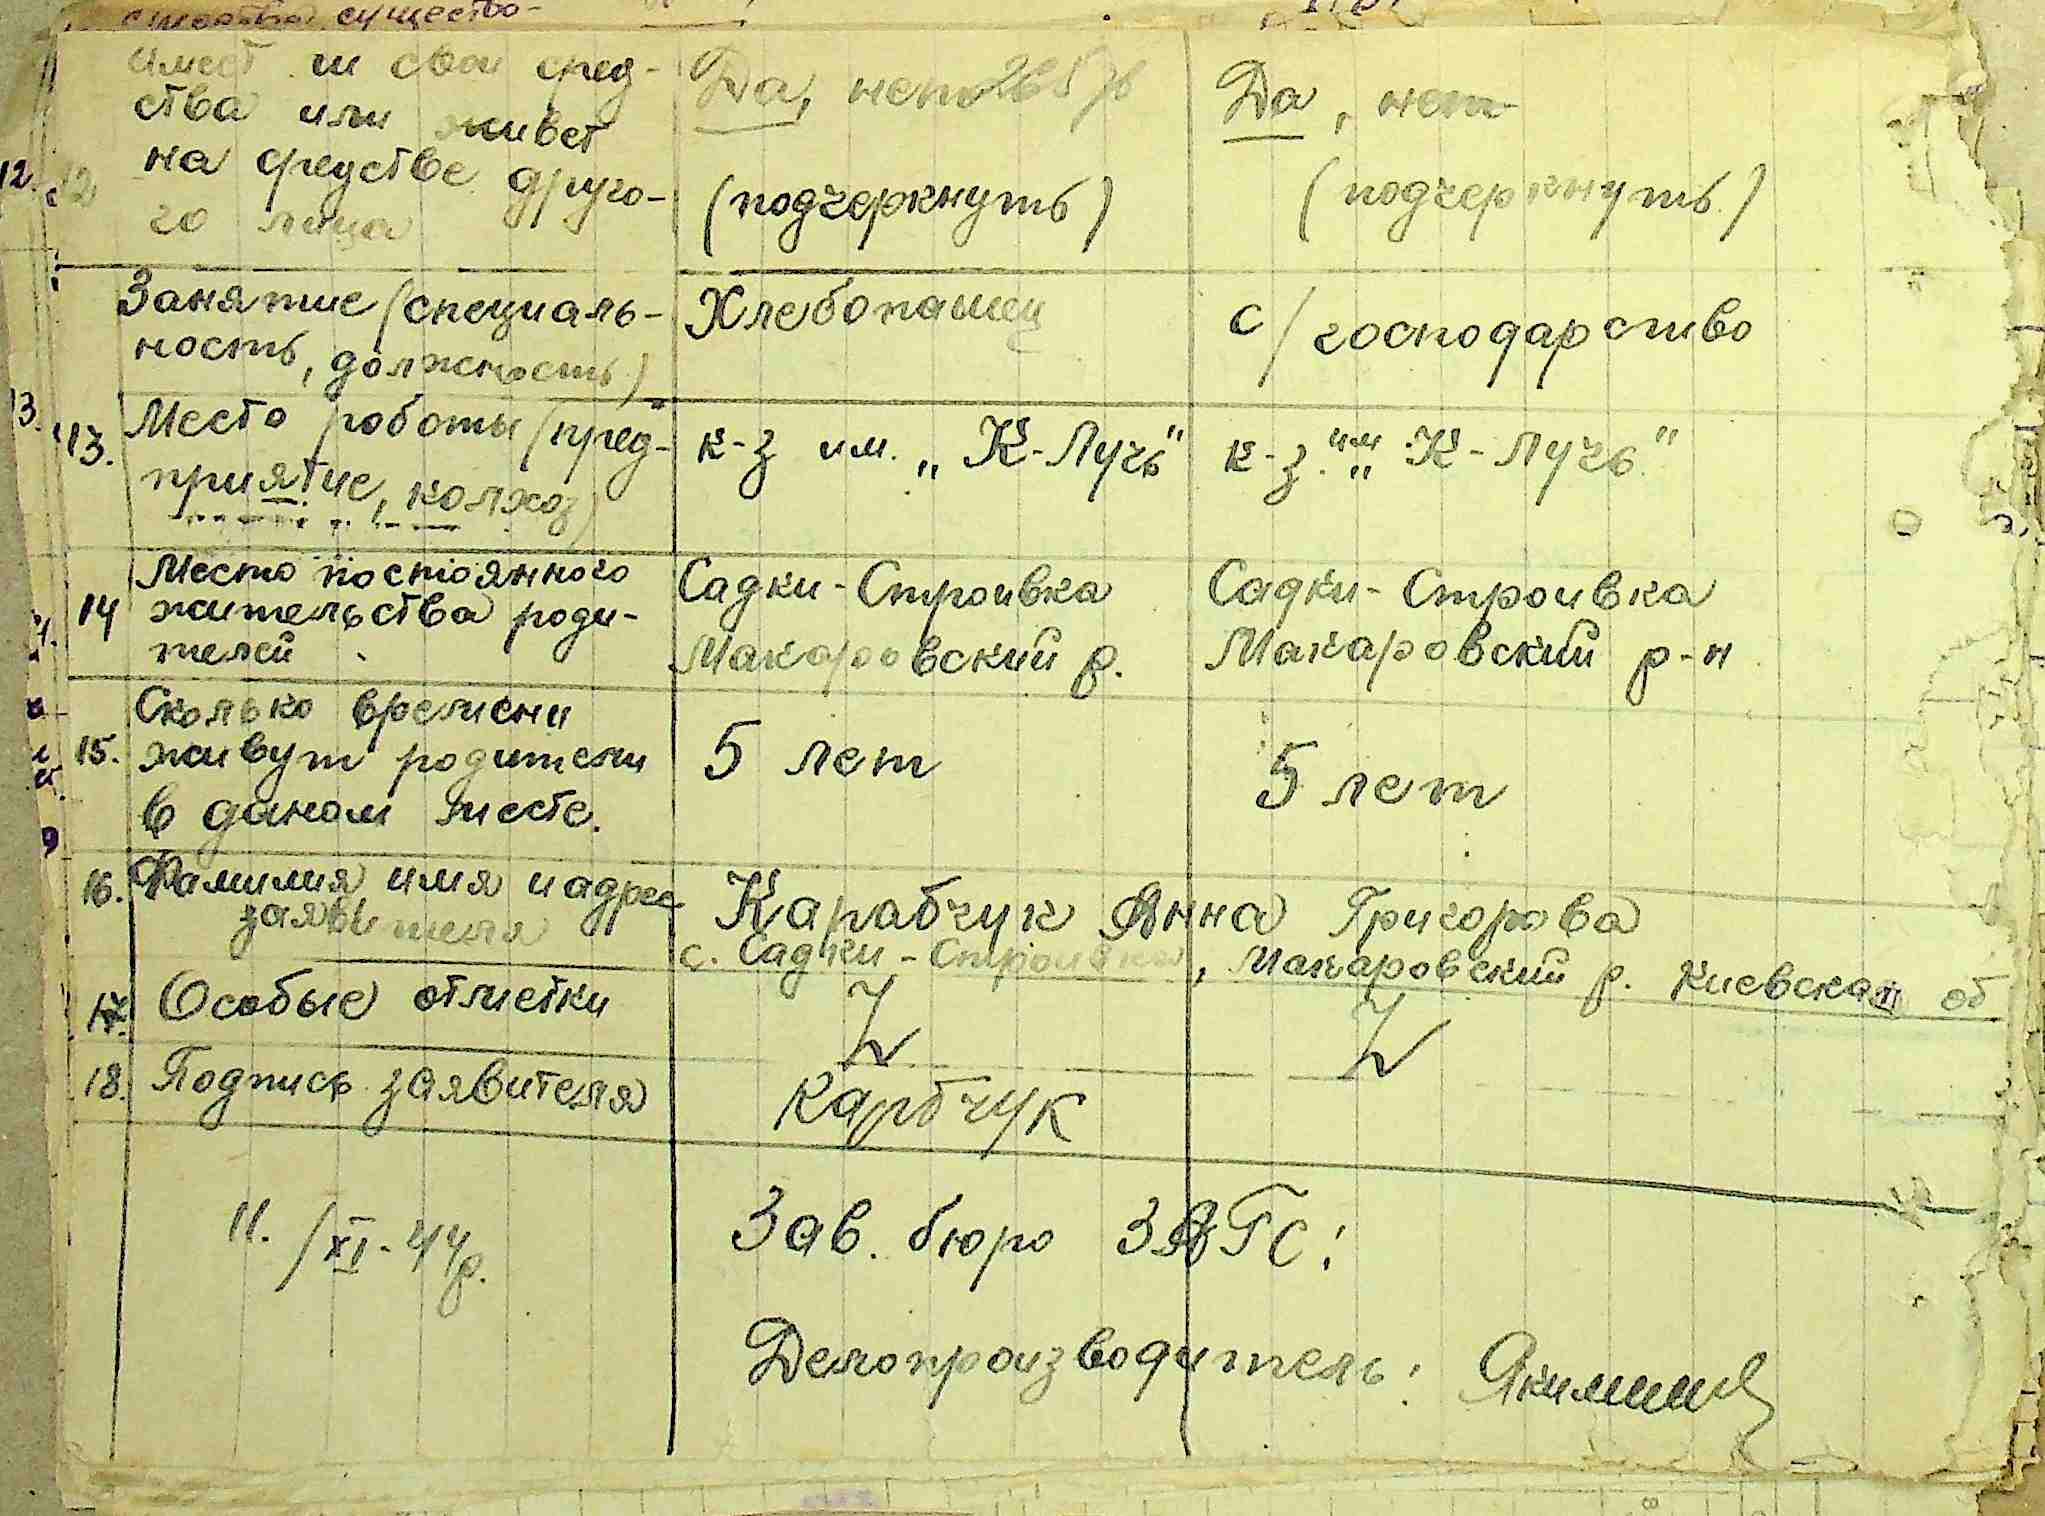 существо-
12.
имеет ли свои сред-
ства или живет
на средстве друго-
го лица
Да, нет
(подчеркнуть)
Да, нет
(подчеркнуть)
Занятие (специаль-
ность, должность)
Хлебопашец
с/господарство
13.
13.
Место роботы (пред-
приятие, колхоз)
к-з им. „К-Лучь"
к-з. им „К-Лучь"
14
Место постоянного
жительства роди-
телей
Садки-Строивка
Макаровский р.
Садки-Строивка
Макаровский р-н
15.
Сколько времени
живут родители
в даном месте.
5 лет
5 лет
16.
Фамилия имя и адрес
заявителя
Карабчук Анна Григорова
с. Садки-Строивка, Макаровский р. Киевская об
17.
Особые отметки
18.
Подпись заявителя
Карбчук
11./XI-44р.
Зав. бюро ЗАГС:
Делопроизводитель: